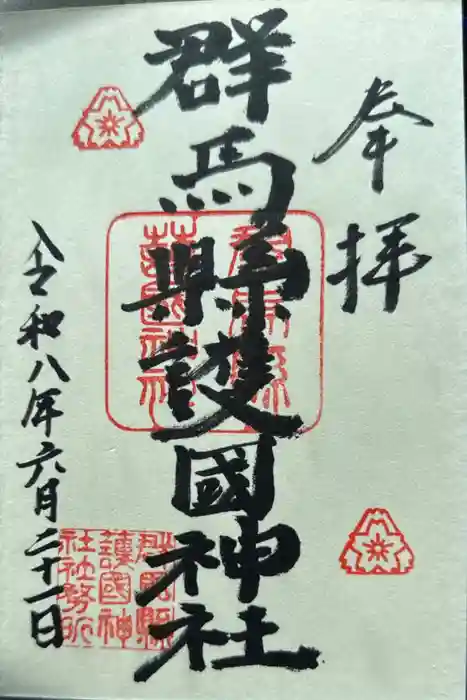 奉拝
群馬縣護國神社
令和八年六月二十一日
群馬縣
護國神
社社務所